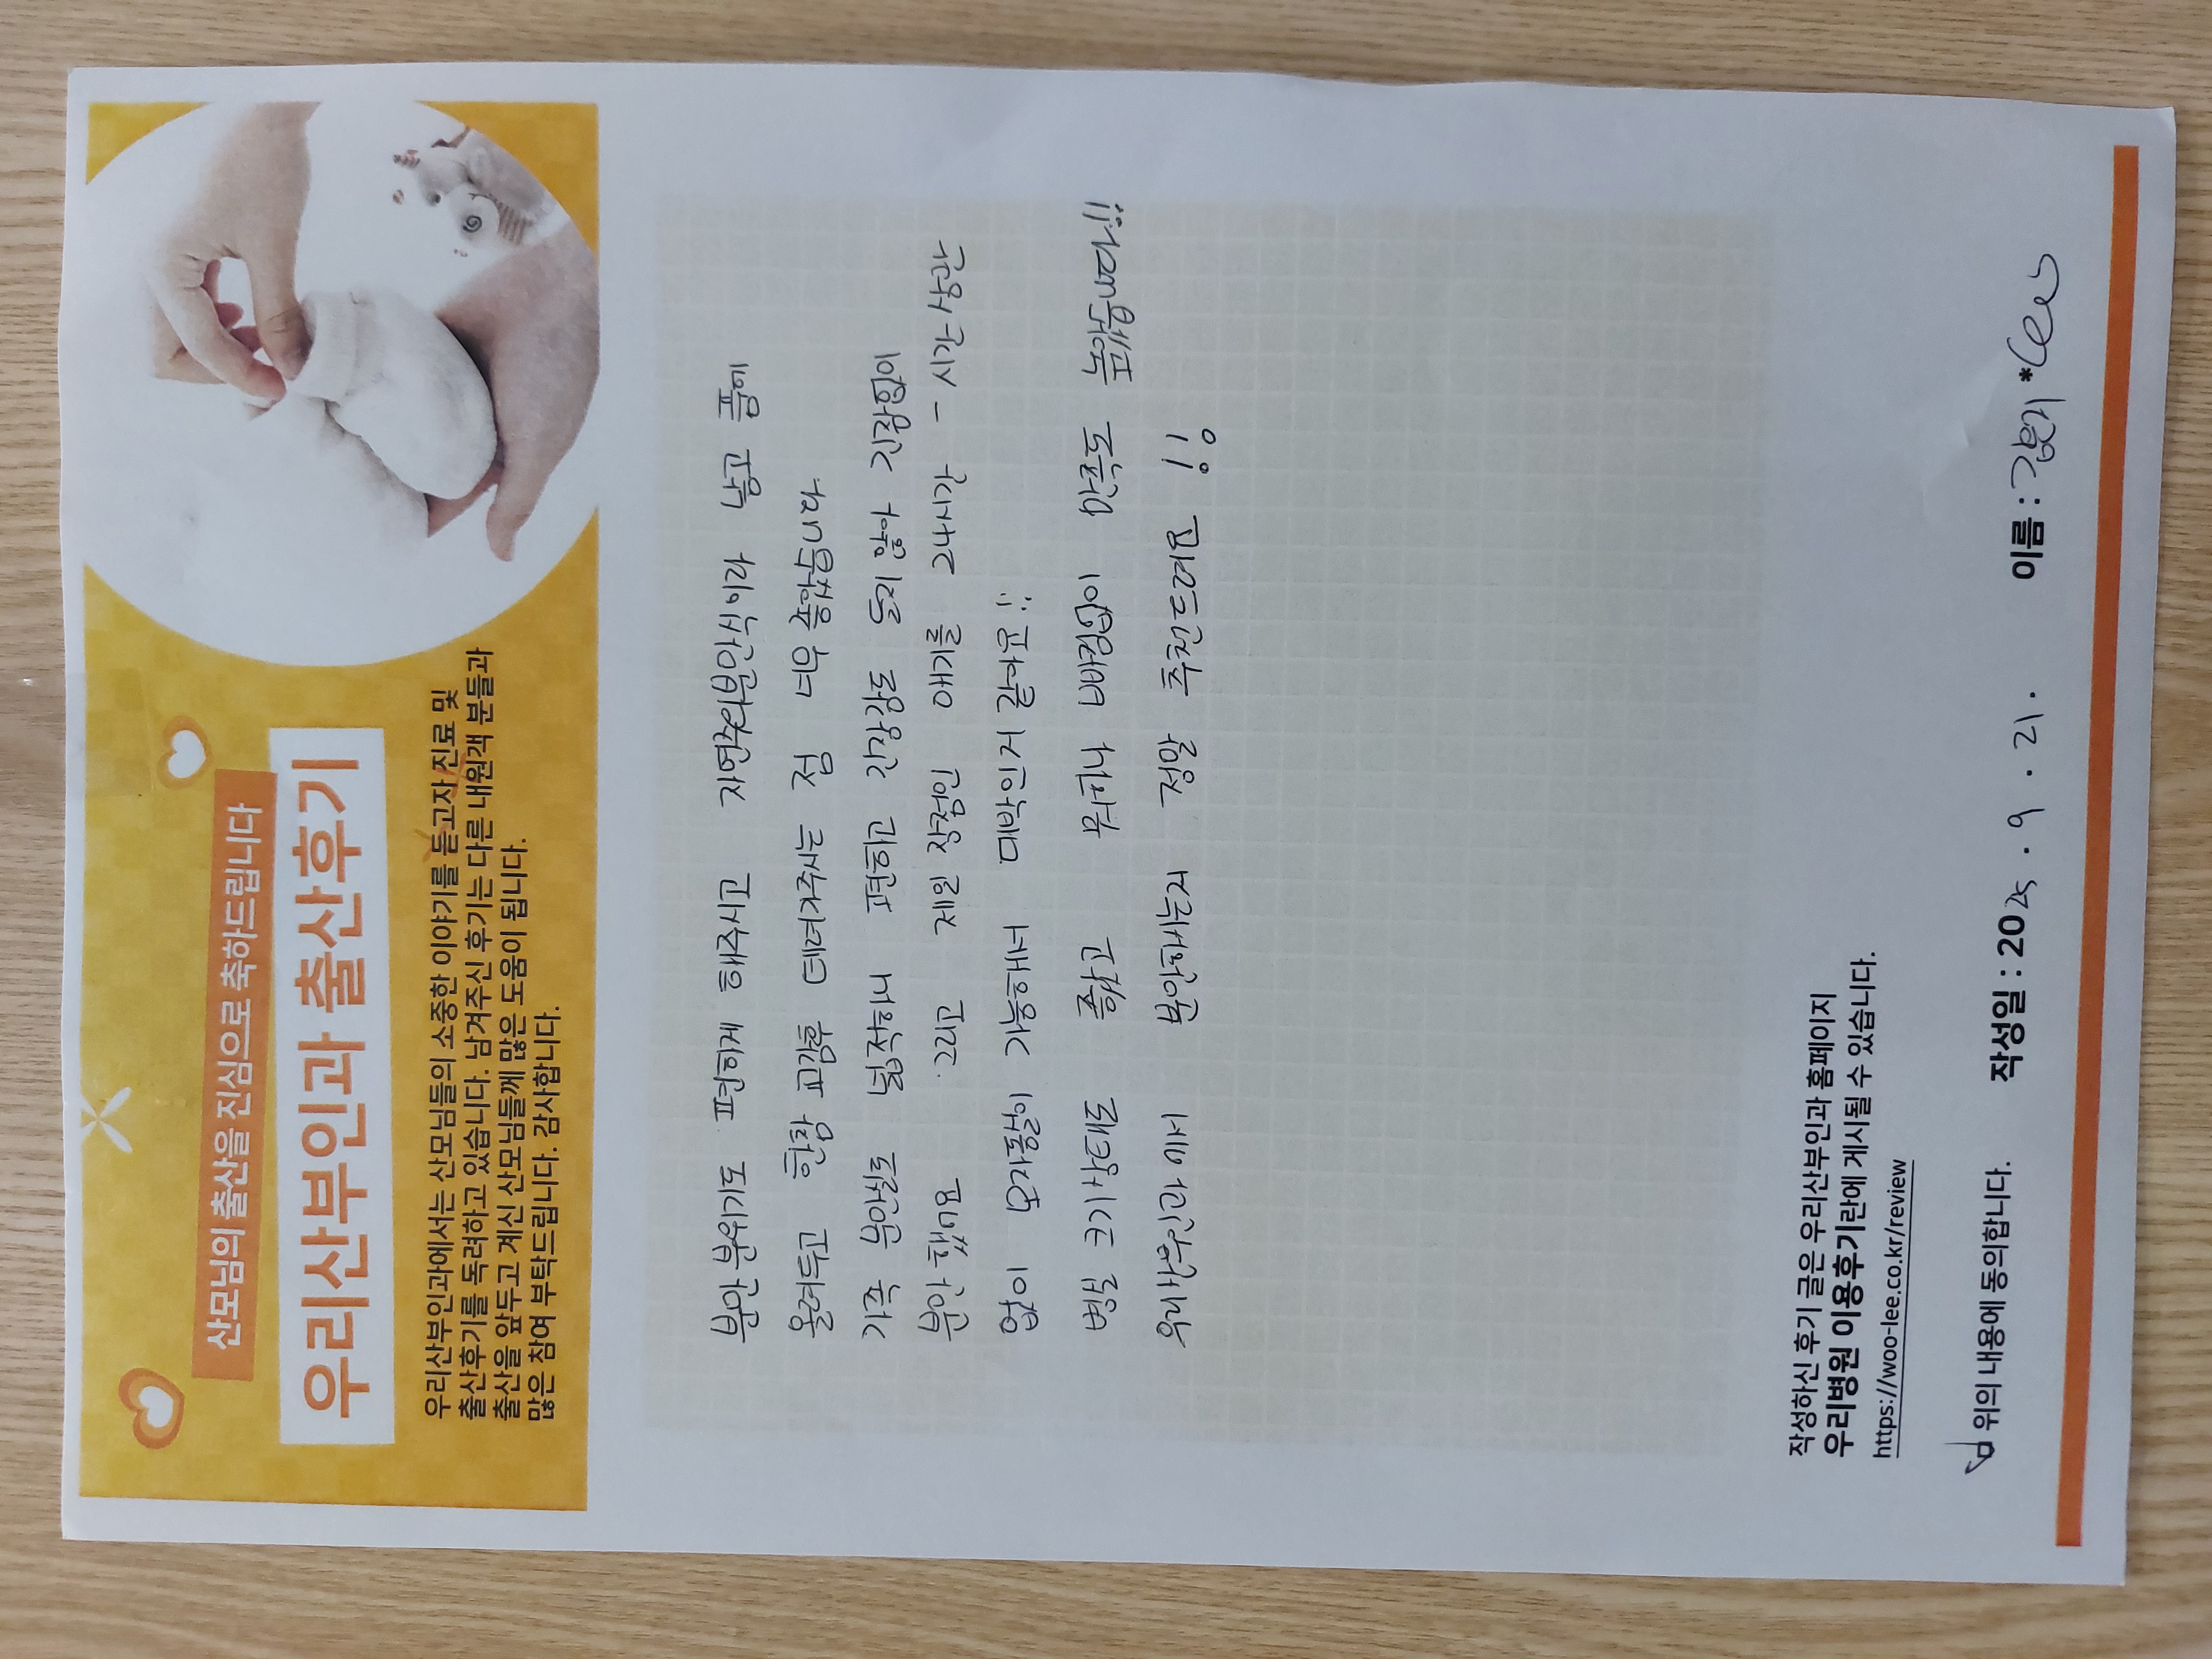 산모님의 출산을 진심으로 축하드립니다
우리산부인과 출산후기
우리산부인과에서는 산모님들의 소중한 이야기를 듣고자 진료 및
출산후기를 독려하고 있습니다. 남겨주신 후기는 다른 내원객 분들과
출산을 앞두고 계신 산모님들께 많은 도움이 됩니다.
많은 참여 부탁드립니다. 감사합니다.
분만 분위기도 편하게 해주시고 자연주의분만식이라 낳고 품에
올려두고 한참 교감후 데려가주시는 점 너무 좋았습니다
가족 분만실도 넓적하니 편하고 긴장감도 되지 않아 긴장없이
분만 했어요 그리고 제일 장점인 애기를 24시간 - 시간 상관
없이 모자동실이 가능해서 대박인거 같아요!!
병실 크기 상태도 좋고 뭐하나 빠짐없이 만족도 높았습니다!!
우리산부인과 에서 분만하시는거 정말 추천드려요 !!
작성하신 후기 글은 우리산부인과 홈페이지
우리병원 이용후기란에 게시될 수 있습니다.
https://woo-lee.co.kr/review
위의 내용에 동의합니다.
작성일 : 2025 . 9 . 21 . 이름 :